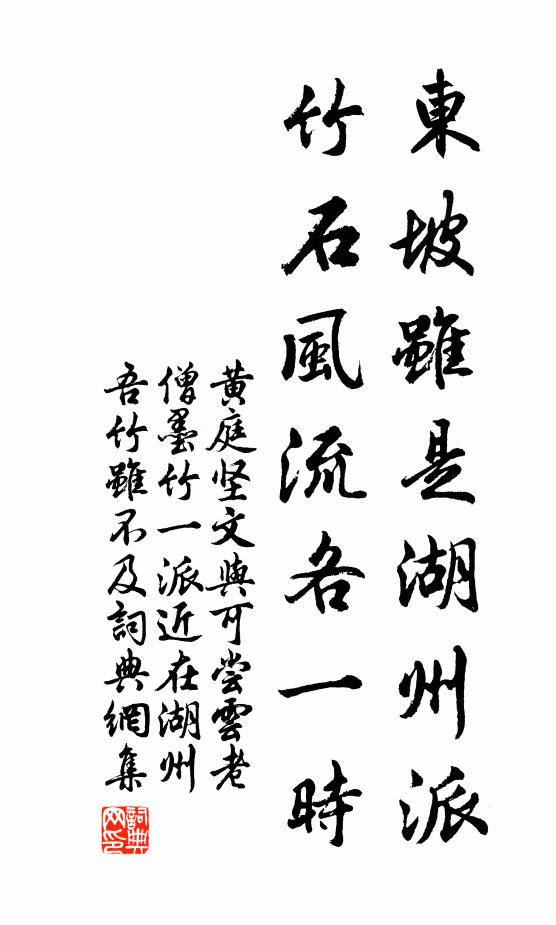 東坡雖是湖州派
竹石風流各一時
黄庭坚文與可嘗雲老
僧墨竹一派近在湖州
吾竹雖不及詞典網集
詞典
网印